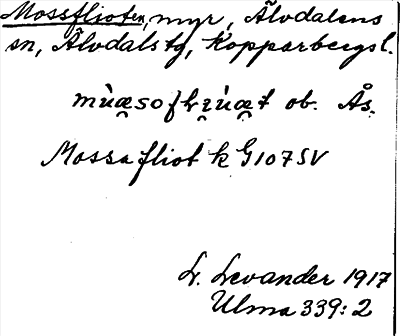 Mossflioten, myr, Älvdalens
sn, Älvdals tg, Kopparbergs l.
ob. Ås.
Mossa fliot k G107SV
L. Levander 1917
Ulma 339:2